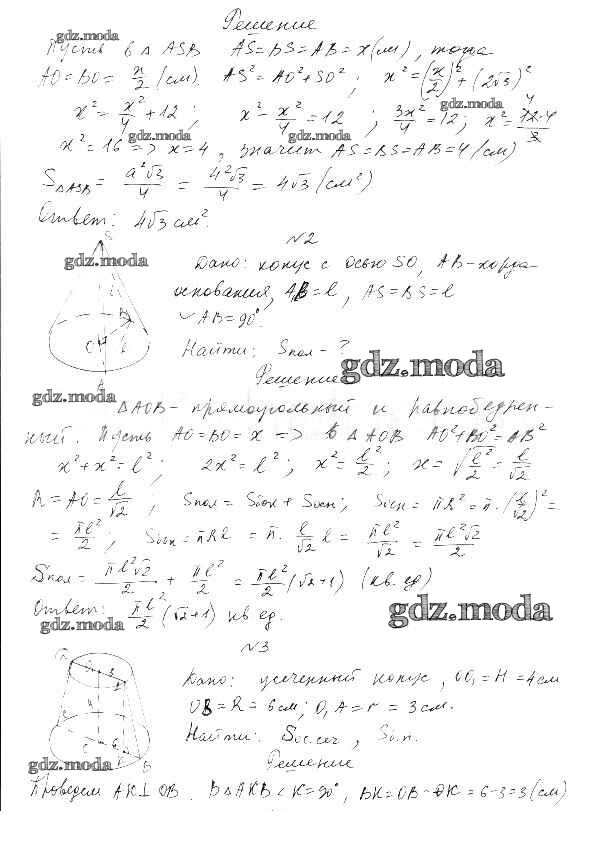 gdz.moda Решение
Пусть в Δ ASB AS=BS=AB=x(см), тогда
AO=BO= x/2 (см). AS²=AO²+SO²; x²=(x/2)²+(2√3)²
gdz.moda
x²= x²/4 +12; x²- x²/4 =12; 3x²/4 =12; x²= 12·4/3 4
gdz.moda gdz.moda
x²=16 => x=4, значит AS=BS=AB=4(см)
S ΔASB = a²√3/4 = 4²√3/4 = 4√3 (см²)
Ответ: 4√3 см².
№2
gdz.moda
Дано: конус с осью SO, AB-хорда
основания, AB=l, AS=BS=l
◡AB=90°.
Найти: Sпол - ?
gdz.moda
Решение
gdz.moda
ΔAOB- прямоугольный и равнобедрен-
ный. Пусть AO=BO=x => в ΔAOB AO²+BO²=AB²
x²+x²=l²; 2x²=l²; x²= l²/2; x=√(l²/2)= l/√2
R=AO= l/√2; Sпол= Sбок+Sосн; Sосн= πR²=π·(l/√2)²=
= πl²/2; Sбок=πRl=π· l/√2 l = πl²/√2 = πl²√2/2
Sпол= πl²√2/2 + πl²/2 = πl²/2 (√2+1) (кв. ед)
Ответ: πl²/2 (√2+1) кв ед.
gdz.moda gdz.moda
№3
Дано: усеченный конус, OO₁=H=4см
OB=R=6см; O₁A=r=3см.
Найти: Sос.сеч, Sбп.
gdz.moda Решение
Проведем AK⊥OB. В ΔAKB ∠K=90°, BK=OB-OK=6-3=3(см)